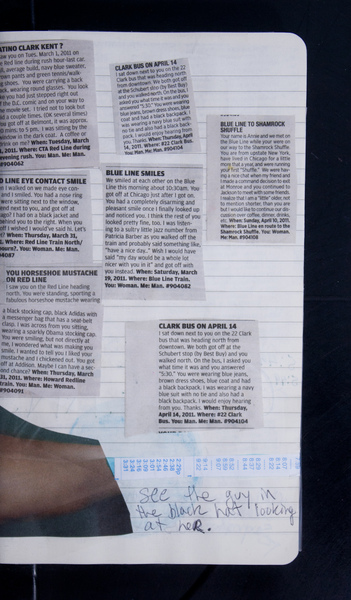 ATING CLARK KENT ?
aw you on Tues. March 1, 2011 on
Red line during rush hour-last car.
average build, navy blue sweater,
pants and green tennis/walk-
shoes. You were carrying a back
wearing round glasses. You look
you had just stepped right out
D.C. comic and on your way to
OK set. I tried not to look but
a couple times. (OK several times)
got off at Belmont, it was approx.
mins. to 5 pm. I was sitting by the
window in the dark coat. A coffee or
drink on me? When: Tuesday, March
1, 2011. Where: CTA Red Line during
evening rush. You: Man. Me: Man.
#904062
D LINE EYE CONTACT SMILE
I walked on we made eye con-
and I smiled. You had a nose ring
were sitting next to the window,
next to you, and I got off at
I had on a black jacket and
behind you to the right. When you
off I wished I would've said hi. Let's
When: Thursday, March 31,
Where: Red Line Train North/
You: Man. Me: Woman.
4087
YOU HORSESHOE MUSTACHE
ON RED LINE
I saw you on the Red Line heading
North. You were standing, sporting a
fabulous horseshoe mustache wearing
a black stocking cap, black Adidas with
a messenger bag that has a seat-belt
clasp. I was across from you sitting,
wearing a sparkly Obama stocking cap.
You were smiling, but not directly at
me, I wondered what was making you
smile, I wanted to tell you I liked your
mustache and I chickened out. You got
off at Addison. Maybe I can have a sec-
ond chance? When: Thursday, March
31, 2011. Where: Howard Redline
Train. You: Man. Me: Woman.
#904091
CLARK BUS ON APRIL 14
I sat down next to you on the 22
Clark bus that was heading north
from downtown. We both got off
at the Schubert stop (by Best Buy)
and you walked north. On the bus, I
asked you what time it was and you
answered "5:30." You were wearing
blue jeans, brown dress shoes, blue
coat and had a black backpack. I
was wearing a navy blue suit with
no tie and also had a black back-
pack. I would enjoy hearing from
you. Thanks. When: Thursday, April
14, 2011. Where: #22 Clark Bus.
You: Man. Me: Man. #904104
BLUE LINE SMILES
We smiled at each other on the Blue
Line this morning about 10:30am. You
got off at Chicago just after I got on.
You had a completely disarming and
pleasant smile once I finally looked up
and noticed you, I think the rest of you
looked pretty fine, too. I was listening
to a sultry little jazz number from
Patricia Barber as you walked off the
train and probably said something like,
"have a nice day." Wish I would have
said "my day would be a whole lot
nicer with you in it" and got off with
you instead. When: Saturday, March
19, 2011. Where: Blue Line Train.
You: Woman. Me: Man. #904082
BLUE LINE TO SHAMROCK
SHUFFLE
Your name is Annie and we met on
the Blue Line while your were on
your way to the Shamrock Shuffle.
You are from upstate New York,
have lived in Chicago for a little
more that a year, and were running
your first "Shuffle."
CLARK BUS ON APRIL 14
I sat down next to you on the 22 Clark
bus that was heading north from
downtown. We both got off at the
Schubert stop (by Best Buy) and you
walked north. On the bus, I asked you
what time it was and you answered
"5:30." You were wearing blue jeans,
brown dress shoes, blue coat and had
a black backpack. I was wearing a navy
blue suit with no tie and also had a
black backpack. I would enjoy hearing
from you. Thanks. When: Thursday,
April 14, 2011. Where: #22 Clark
Bus. You: Man. Me: Man. #904104
see the guy in
the black hat looking
at her.